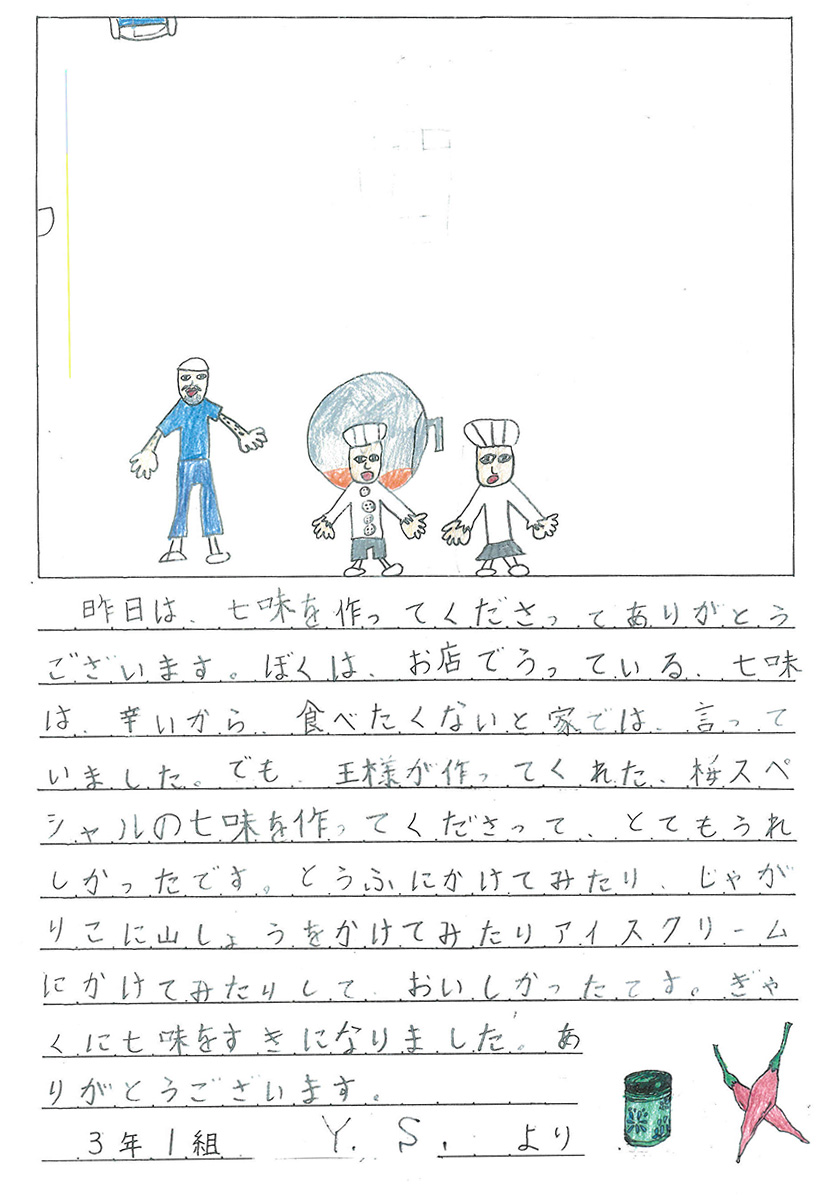 昨日は、七味を作ってくださってありがとう
ございます。ぼくは、お店でうっている、七味
は、辛いから、食べたくないと家では、言って
いました。でも、王様が作ってくれた、桜スペ
シャルの七味を作ってくださって、とてもうれ
しかったです。とうふにかけてみたり、じゃが
りこに山しょうをかけてみたりアイスクリーム
にかけてみたりして、おいしかったです。ぎゃ
くに七味をすきになりました。あ
りがとうございます。
3年1組 Y. S. より